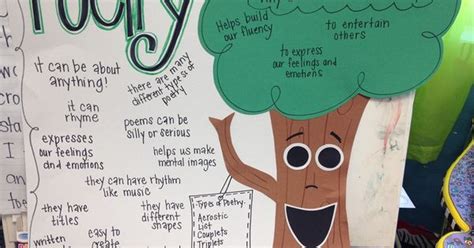 Poetry
Helps build
our fluency
to entertain
others
to express
our feelings and
emotions
it can be about
anything!
there are many
different types of
poetry
it can
rhyme
poems can be
silly or serious
expresses
our feelings
and emotions
helps us make
mental images
they can have rhythm
like music
they have
titles
they have
different
shapes
written
easy to
create
Types of Poetry
Acrostic
List
Couplets
Triplets